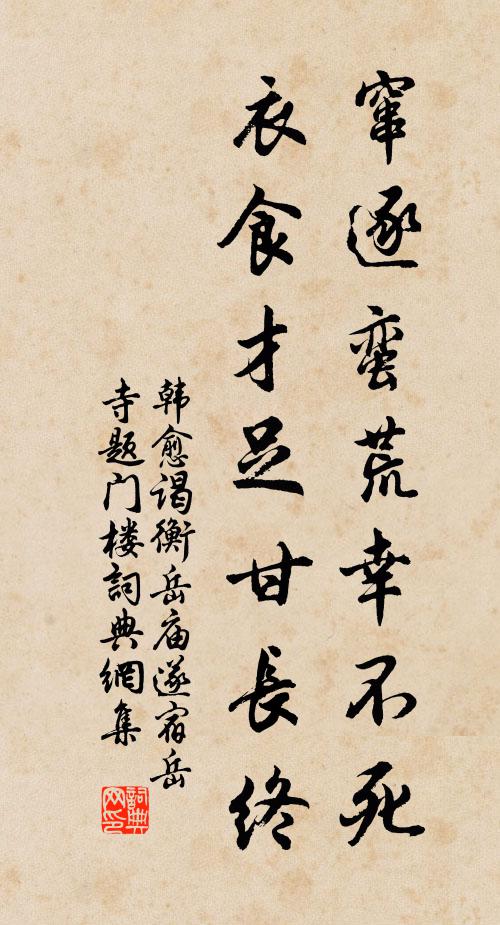 窜逐蛮荒幸不死
衣食才足甘长终
韩愈谒衡岳庙遂宿岳
寺题门楼詞典網集
詞典
网印